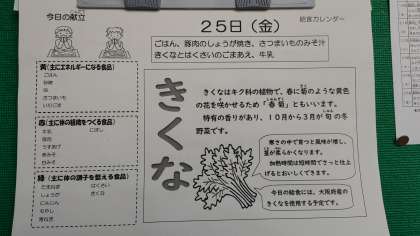 今日の献立
25日（金）
給食カレンダー
ごはん、豚肉のしょうが焼き、さつまいものみそ汁
きくなとはくさいのごまあえ、牛乳
黄（主にエネルギーになる食品）
ごはん
砂糖
油
さつまいも
いりごま
赤（主に体の組織をつくる食品）
牛乳
にぼし
豚肉
うすあげ
赤みそ
白みそ
緑（主に体の調子を整える食品）
たまねぎ
はくさい
しょうが
きくな
にんじん
もやし
青ねぎ
きくな
きくなはキク科の植物で、春に菊のような黄色
の花を咲かせるため「春菊」ともいいます。
特有の香りがあり、１０月から３月が旬の冬
野菜です。
寒さの中で育つと風味が増し、
葉が柔らかくなります。
加熱時間は短時間でさっと仕上
げるとおいしくできます。
今日の給食には、大阪府産の
きくなを使用する予定です。